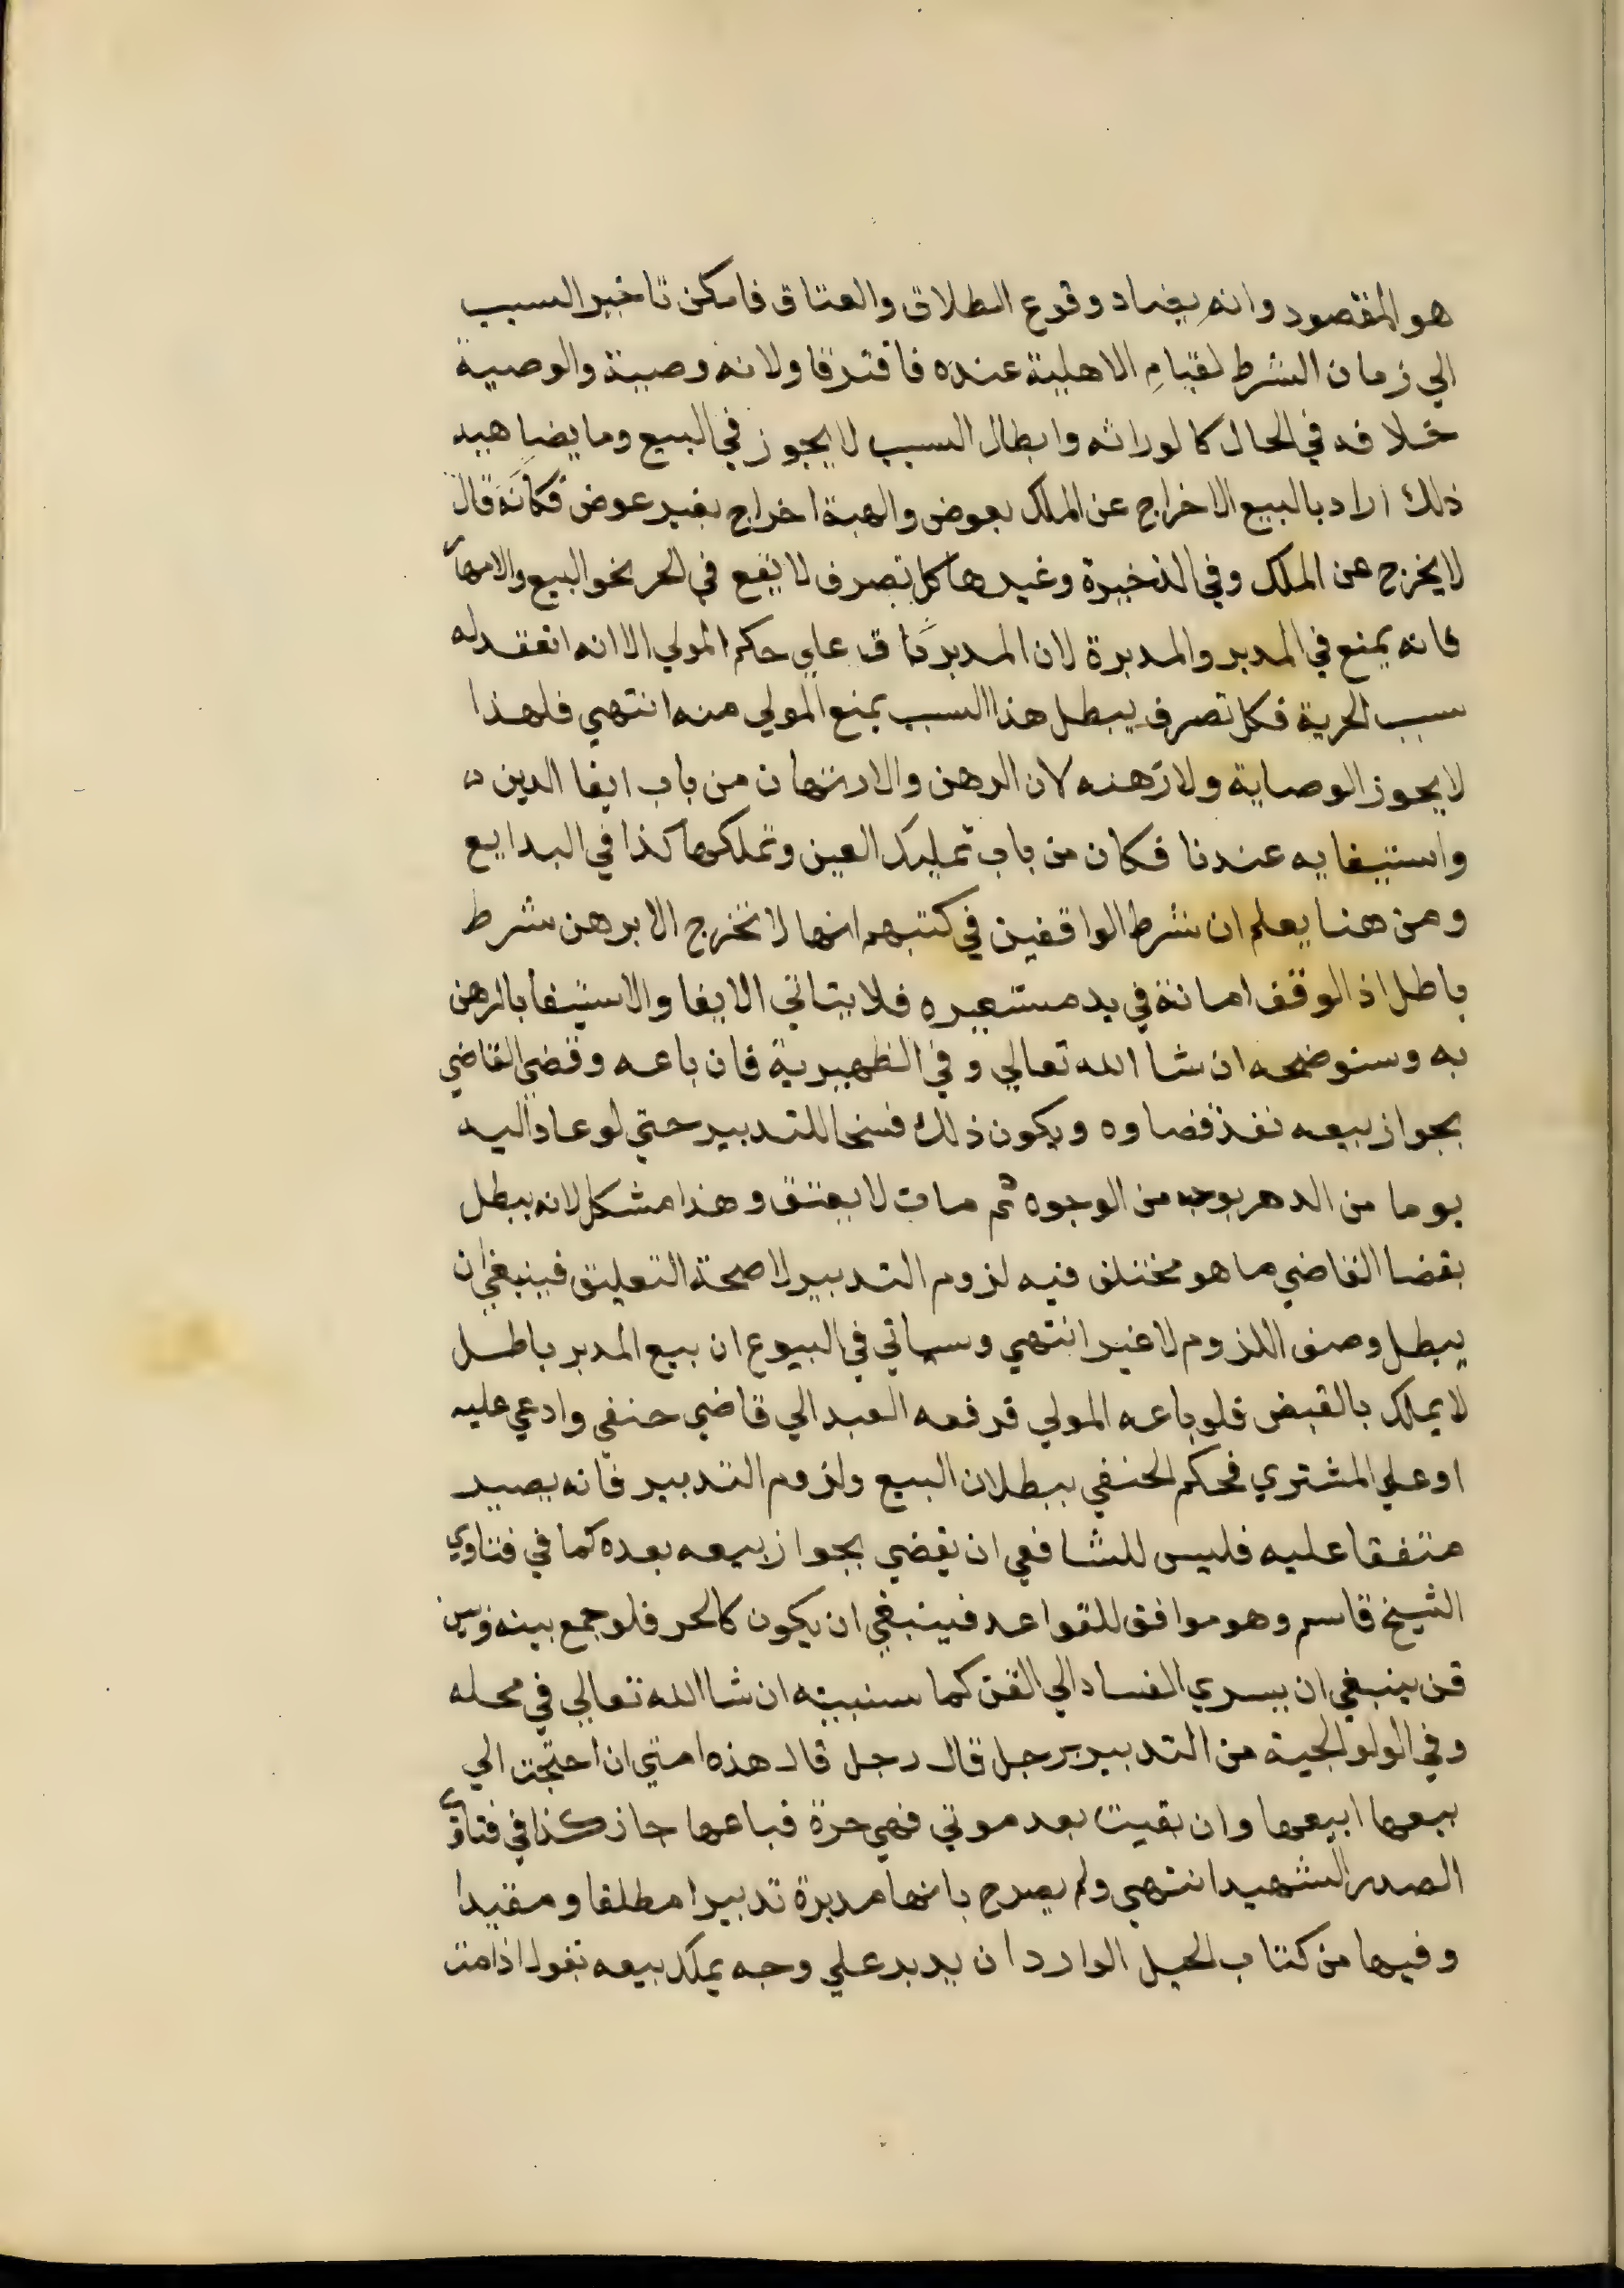 هو المقصود وانه يضاد وقوع الطلاق والعتاق فامكن تاخير السبب
الي زمان الشرط لقيام الاهلية عنده فافترقا ولانه وصية والوصية
خلافه في الحال كالوراثه وابطال السبب لا يجوز في البيع وما يضاهيه
ذلك اراد بالبيع الاخراج عن الملك بعوض والهبة اخراج بغير عوض فكانه قال
لا يخرج عن الملك وفي الذخيرة وغيرها كل تصرف لا يقع في الحر نحو البيع والامهار
فانه يمنع في المدبر والمدبرة لان المدبر باق علي حكم المولي الا انه انعقد له
سبب الحرية فكل تصرف يبطل هذا السبب يمنع المولي منه انتهي فلهذا
لا يجوز الوصاية ولا رهنه لان الرهن والارتهان من باب ايفا الدين
واستيفايه عندنا فكان من باب تمليك العين وتملكها كذا في البدايع
ومن هنا يعلم ان شرط الواقفين في كتبهم انها لا تخرج الا برهن شرط
باطل اذ الوقف امانة في يد مستعيره فلا يتاتي الايفا والاستيفا بالرهن
به وسنوضحه ان شا الله تعالي وفي الظهيرية فان باعه وقضي القاضي
بجواز بيعه نفذ قضاوه ويكون ذلك فسخا للتدبير حتي لو عاد اليه
يوما من الدهر بوجه من الوجوه ثم مات لا يعتق وهذا مشكل لانه يبطل
بقضا القاضي ما هو مختلف فيه لزوم التدبير لا صحة التعليق فينبغي ان
يبطل وصف اللزوم لا غير انتهي وسياتي في البيوع ان بيع المدبر باطل
لا يملك بالقبض فلو باعه المولي فرفعه العبد الي قاضي حنفي وادعي عليه
او علي المشتري فحكم الحنفي ببطلان البيع ولزوم التدبير فانه يصير
متفقا عليه فليس للشافعي ان يقضي بجواز بيعه بعده كما في فتاوي
الشيخ قاسم وهو موافق للقواعد فينبغي ان يكون كالحر فلو جمع بينه وبين
قن ينبغي ان يسري الفساد الي القن كما سنبينه ان شا الله تعالي في محله
وفي الولوالجية من التدبير برجل قال رجل قال هذه امتي ان احتجت الي
بيعها ابيعها وان بقيت بعد موتي فهي حرة فباعها جاز كذا في فتاوي
الصدر الشهيد انتهي ولم يصرح بانها مدبرة تدبيرا مطلقا ومقيدا
وفيها من كتاب الحيل الوارد ان يدبر علي وجه يملك بيعه تقول اذا مت